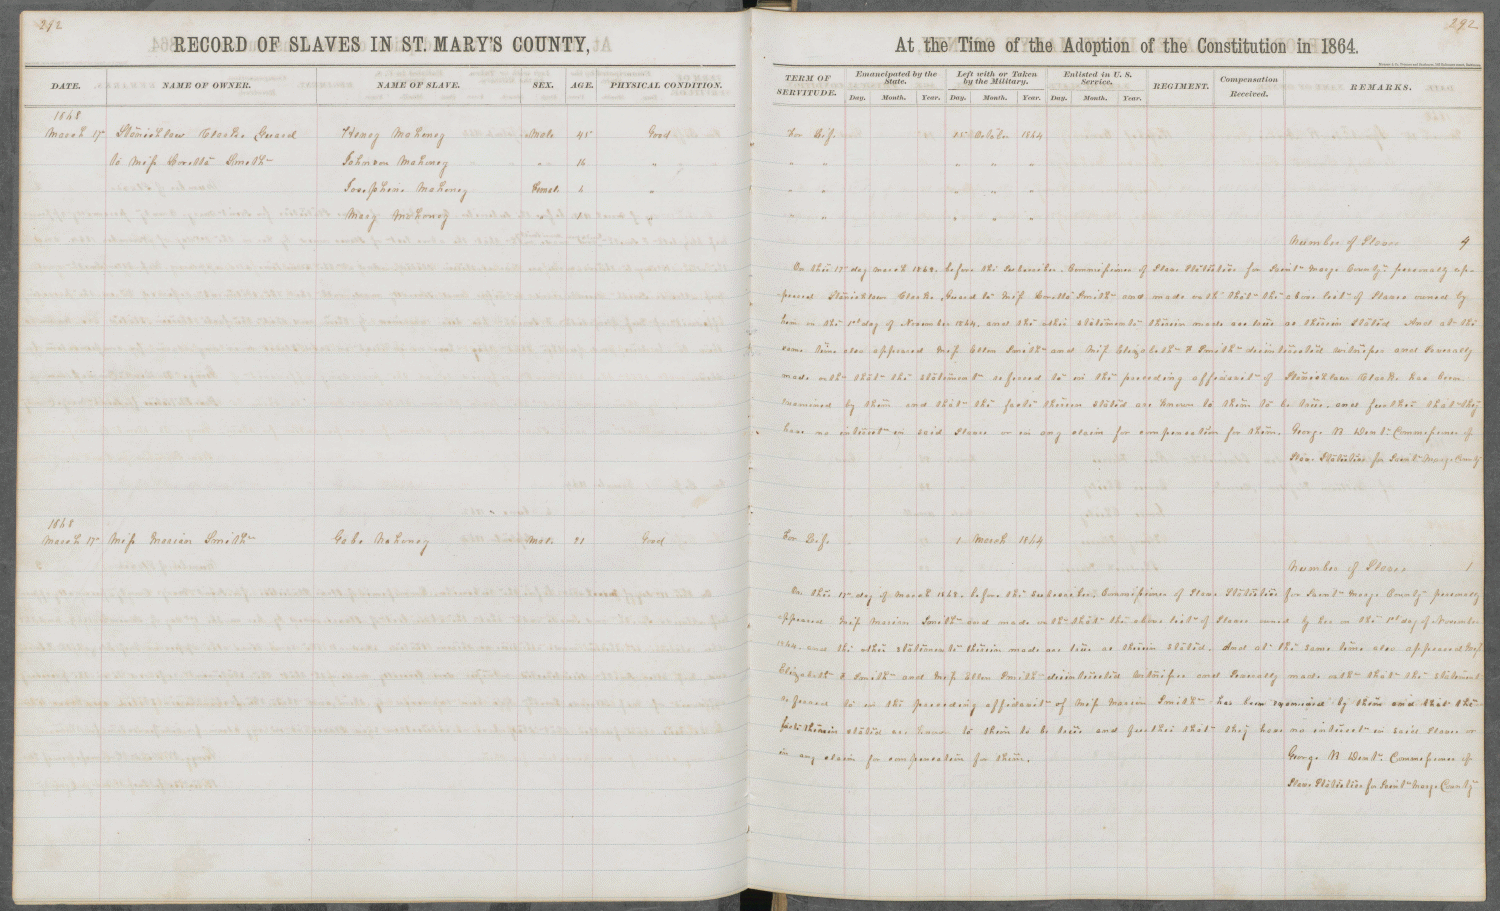 292
RECORD OF SLAVES IN ST. MARY'S COUNTY,
DATE. NAME OF OWNER. NAME OF SLAVE. SEX. AGE. PHYSICAL CONDITION.
1868
March 15 Stanishlaw Clarke Guard Henry Mahoney Male 45 Good
to Miss Loretta Smith Johnson Mahoney " 16 "
Josephine Mahoney Femal. "
Mary Mahoney " "
1868
March 15 Miss Marian Smith Gabe Mahoney Male 21 Good
292
At the Time of the Adoption of the Constitution in 1864.
TERM OF SERVITUDE. Emancipated by the State. Left with or Taken by the Military. Enlisted in U. S. Service. REGIMENT. Compensation Received. REMARKS.
Day. Month. Year. Day. Month. Year. Day. Month. Year.
For Life 25 October 1864
" " " " "
" " " " "
" " " " "
Number of Slaves 4
On this 15 day March 1868. before the Subscriber. Commissioner of Slave Statistics for Saint Marys County personaly ap-
peared Stanishlaw Clarke Guard to Miss Loretta Smith and made oath that the above list of Slaves owned by
him on the 1st day of November 1864. and the other statements therein made are true as therein stated And at the
same time also appeared Miss Ellen Smith and Miss Elizabeth A Smith disinterested witnesses and Severally
made oath that the statement refered to in the preceding affidavit of Stanishlaw Clarke has been
examined by them and that the facts therein stated are known to them to be true. and further that they
have no interest in said Slaves or in any claim for compensation for them. George N Dent Commissioner of
Slave Statistics for Saint Marys County
For Life 1 March 1864
Number of Slaves 1
On this 15 day of March 1868. before the Subscriber. Commissioner of Slave Statistics for Saint Marys County personaly
appeared Miss Marian Smith and made oath that the above list of Slaves owned by her on the 1st day of November
1864. and the other statements therein made are true as therein stated. And at the same time also appeared Miss
Elizabeth A Smith and Miss Ellen Smith disinterested witnesses and Severally made oath that the statement
refered to in the preceding affidavit of Miss Marian Smith has been examined by them and that the
facts therein stated are known to them to be true and further that they have no interest in said Slaves or
in any claim for compensation for them. George N Dent. Commissioner of
Slave Statistics for Saint Marys County